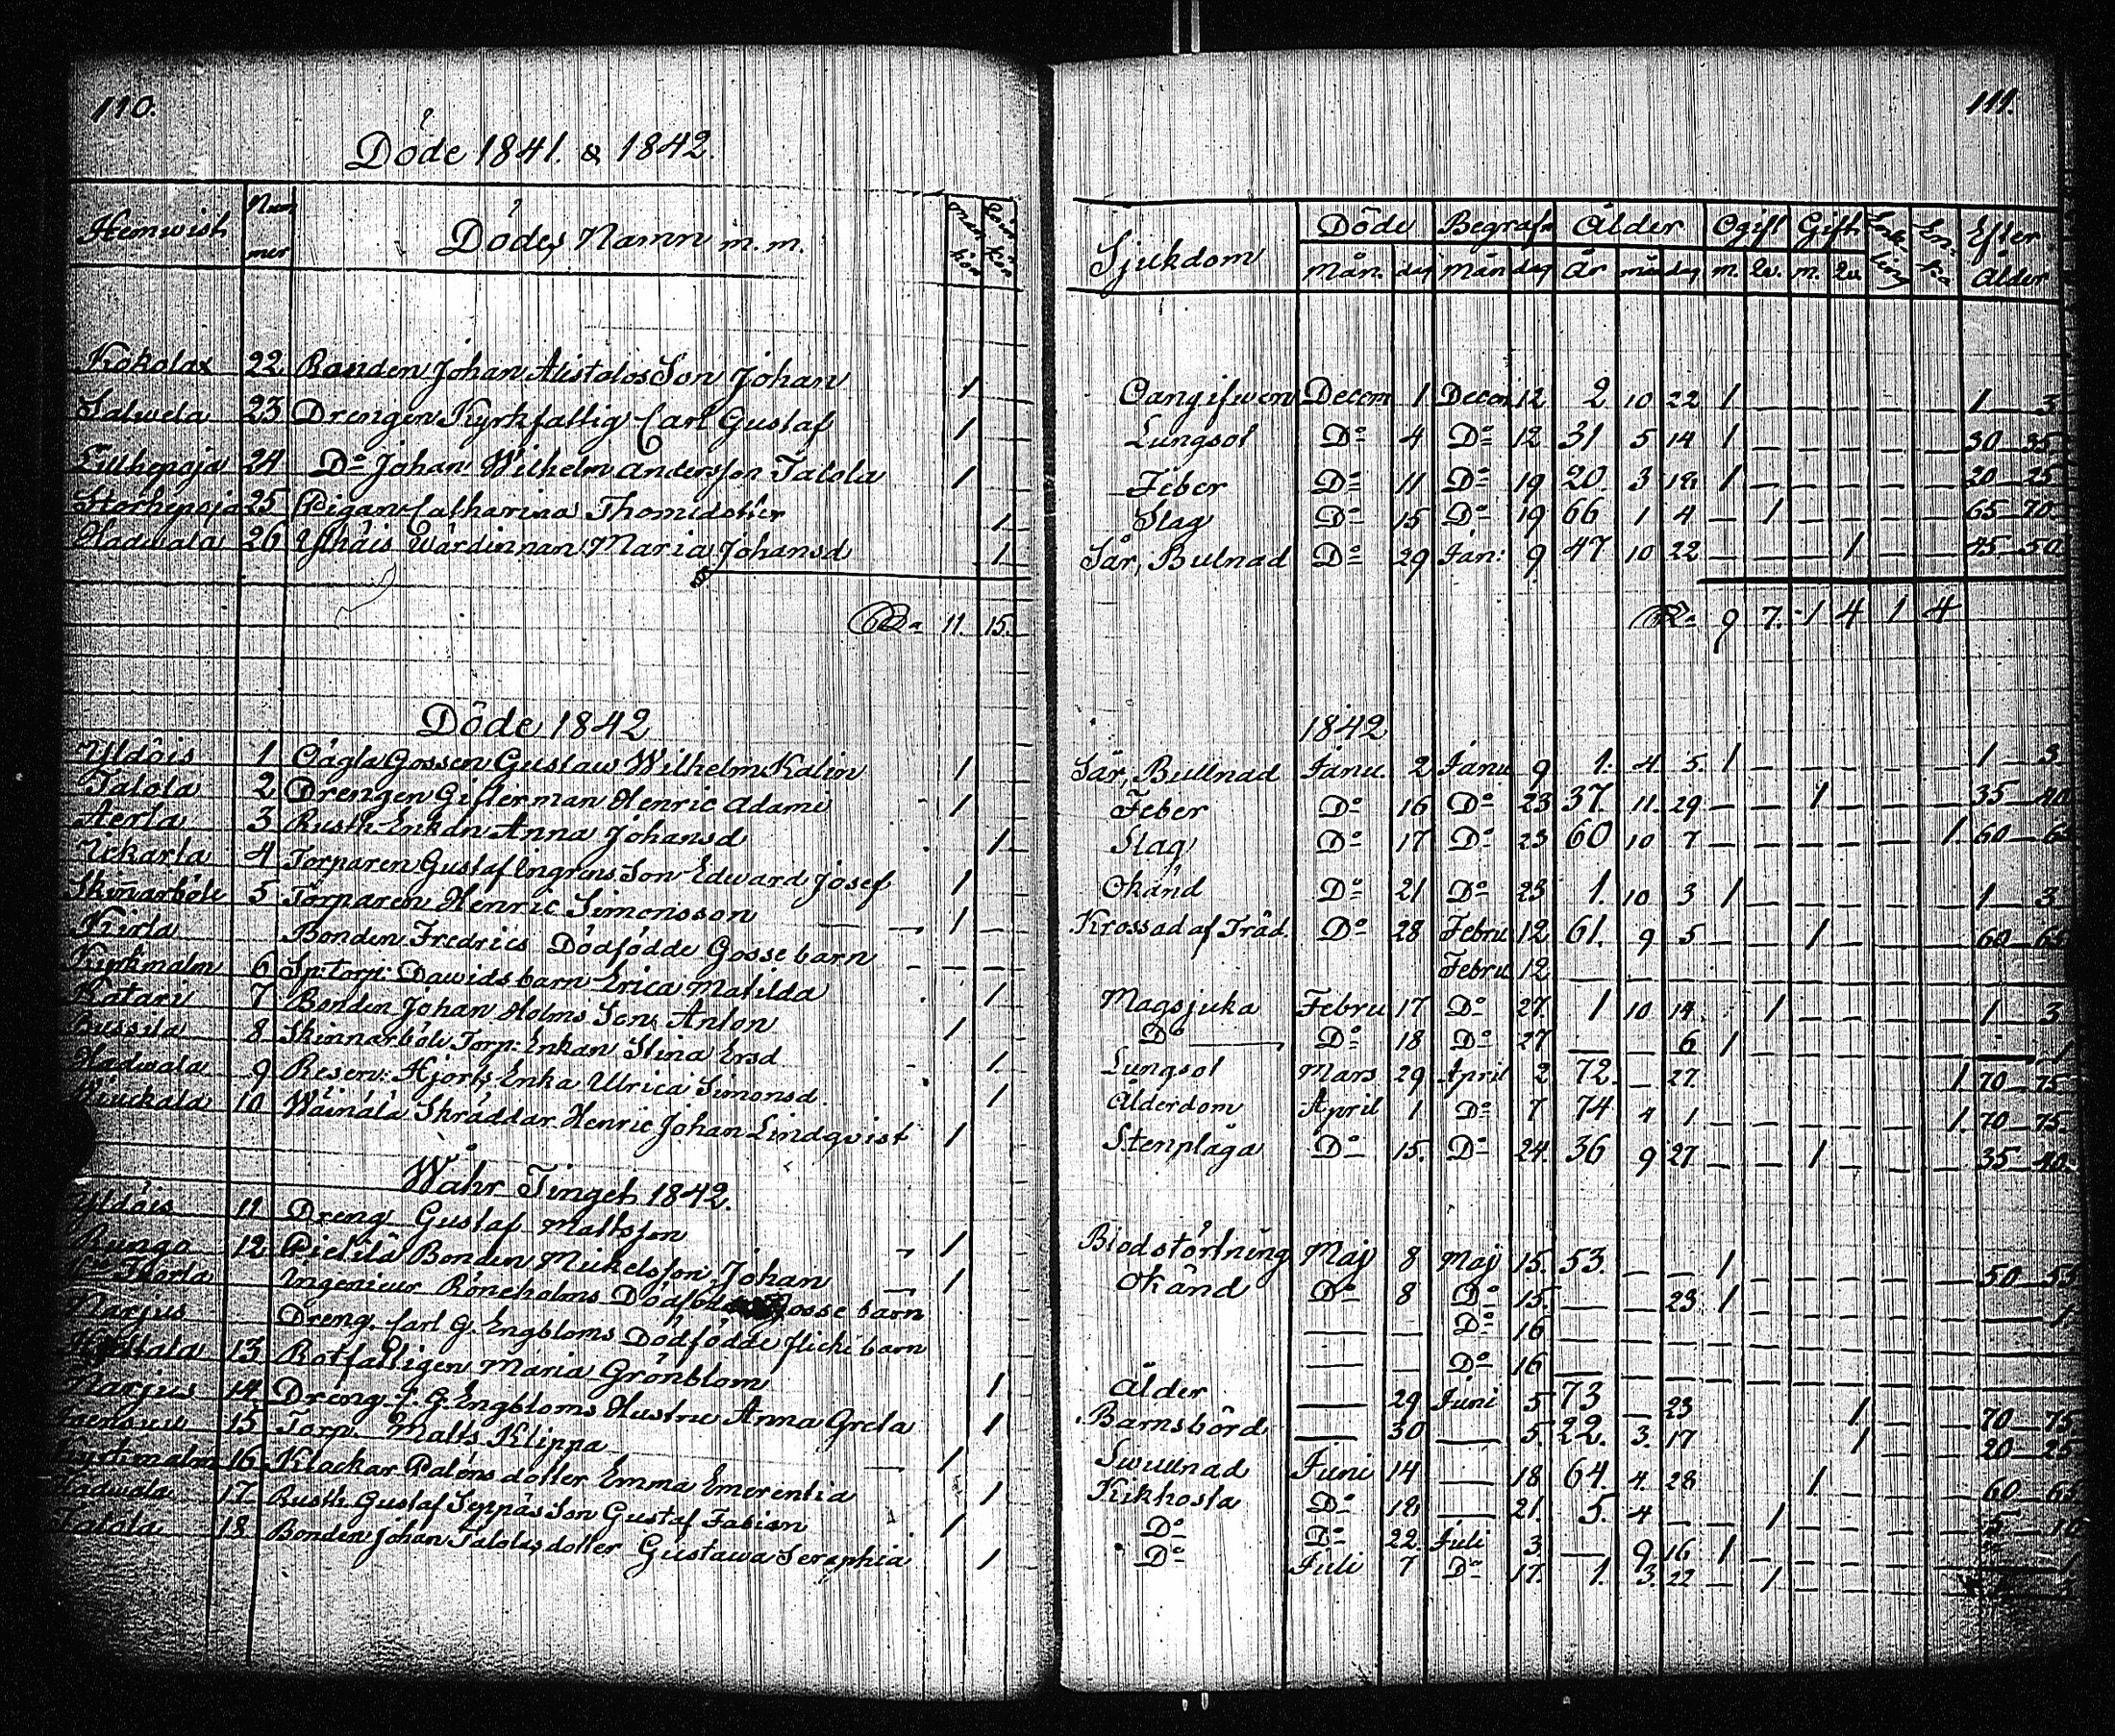 110.
Döde 1841. & 1842.
Hemwist Num mer Döde, Namn m. m. Man kön Qvin kön
Kokolax 22 Bonden Johan Alistalos Son Johan 1
Salwela 23 Drengen Kyrkfattig Carl Gustaf 1
Lillhepoja 24 Do Johan Wilhelm Andersson Talola 1
Storhepoja 25 Pigan Catharina Thomidotter 1
Hadwala 26 Ylhäis Wärdinnan Maria Johansd 1
11. 15.
Döde 1842
Yldöis 1 Oägta Gossen Gustaw Wilhelm Kalin 1
Talola 2 Drengen Gifterman Henric Adami 1
Aerla 3 Rusth. Enkan Anna Johansd 1
Uckarla 4 Torparen Gustaf Engrens Son Edward Josef 1
Skinarböle 5 Torparen Henric Simonsson 1
Kirla Bonden Fredrics Dödfödde Gossebarn
Kyrkmalm 6 Sp: torp: Dawids barn Erica Matilda 1
Katari 7 Bonden Johan Holms Son Anton 1
Bussila 8 Skinnarböle Torp: Enkan Stina Ersd 1
Hadwala 9 Reserv: Hjorts Enka Ulrica Simonsd. 1
10 Wäinälä Skräddar Henric Johan Lindqvist 1
Wåhr Tinget 1842.
Yldöis 11 Dreng Gustaf Mattsson 1
Rungo 12 Pietilä Bonden Mickelsson Johan 1
Ingenieur Röneholms Gosse barn
Narjus Dreng. Carl G. Engbloms Dödfödde flicke barn
13 Rotfattigen Maria Grönblom 1
Narjus 14 Dreng C. G. Engbloms Hustru Anna Greta 1
15 Torp. Matts Klippa 1
Kyrkmalm 16 Klockar Paléns dotter Emma Emerentia 1
Hadwala 17 Rusth. Gustaf Seppäs Son Gustaf Fabian 1
Talola 18 Bonden Johan Talolas dotter Gustawa Seraphia 1
111.
Sjukdom Döde Begrafn Ålder Ogift Gift Enk-ling En-ka Efter Ålder
Mån. dag Mån dag År mån dag m. Qv. m. Qv.
Oangifwen Decem 1 Decem 12 2 10 22 1 1 3
Lungsot Do 4 Do 12 31 5 14 1 30 35
Feber Do 11 Do 19 20 3 18 1 20 25
Slag Do 15 Do 19 66 1 4 1 65 70
Sår, Bulnad Do 29 Jan: 9 47 10 22 1 45 50
9 7. 1 4 1 4
1842
Sår, Bullnad Janu. 2 Janu 9 1. 4. 5. 1 1 3.
Feber Do 16 Do 23 37 11. 29 1 35 40
Slag Do 17 Do 23 60 10 7 1. 60
Okänd Do 21 Do 23 1. 10 3 1 1 3
Krossad af Träd. Do 28 Febru 12 61. 9 5 1 60 65
Febru 12
Magsjuka Febru 17 Do 27. 1 10 14 1 1 3
Do Do 18 Do 27 6 1 1
Lungsot Mars 29 April 2 72. 27 1. 70 75
Ålderdom April 1 Do 7 74 4 1 1. 70 75.
Stenplåga Do 15. Do 24. 36 9 27 1 35 40
Blodstörtning Maj 8 Maj 15. 53. 1 50 55
Okänd Do 8 Do 15. 23 1 1
Do 16
Do 16
Ålder 29 Juni 5 73 23 1 70 75
Barnsbörd 30 5. 22. 3. 17 1 20 25
Swullnad Juni 14 18 64. 4. 28 1 60 65
Kikhosta Do 18 21. 5. 4 1 5 10
Do Do 22. Juli 3 9 16 1 1
Do Juli 7 Do 17. 1. 3. 22 1